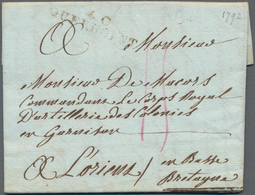 1792
A Monsieur
Monsieur De Macors
Commandant le Corps Royal
D'artillerie des Colonies
en Garnison
A L'orient / en Basse
Bretagne